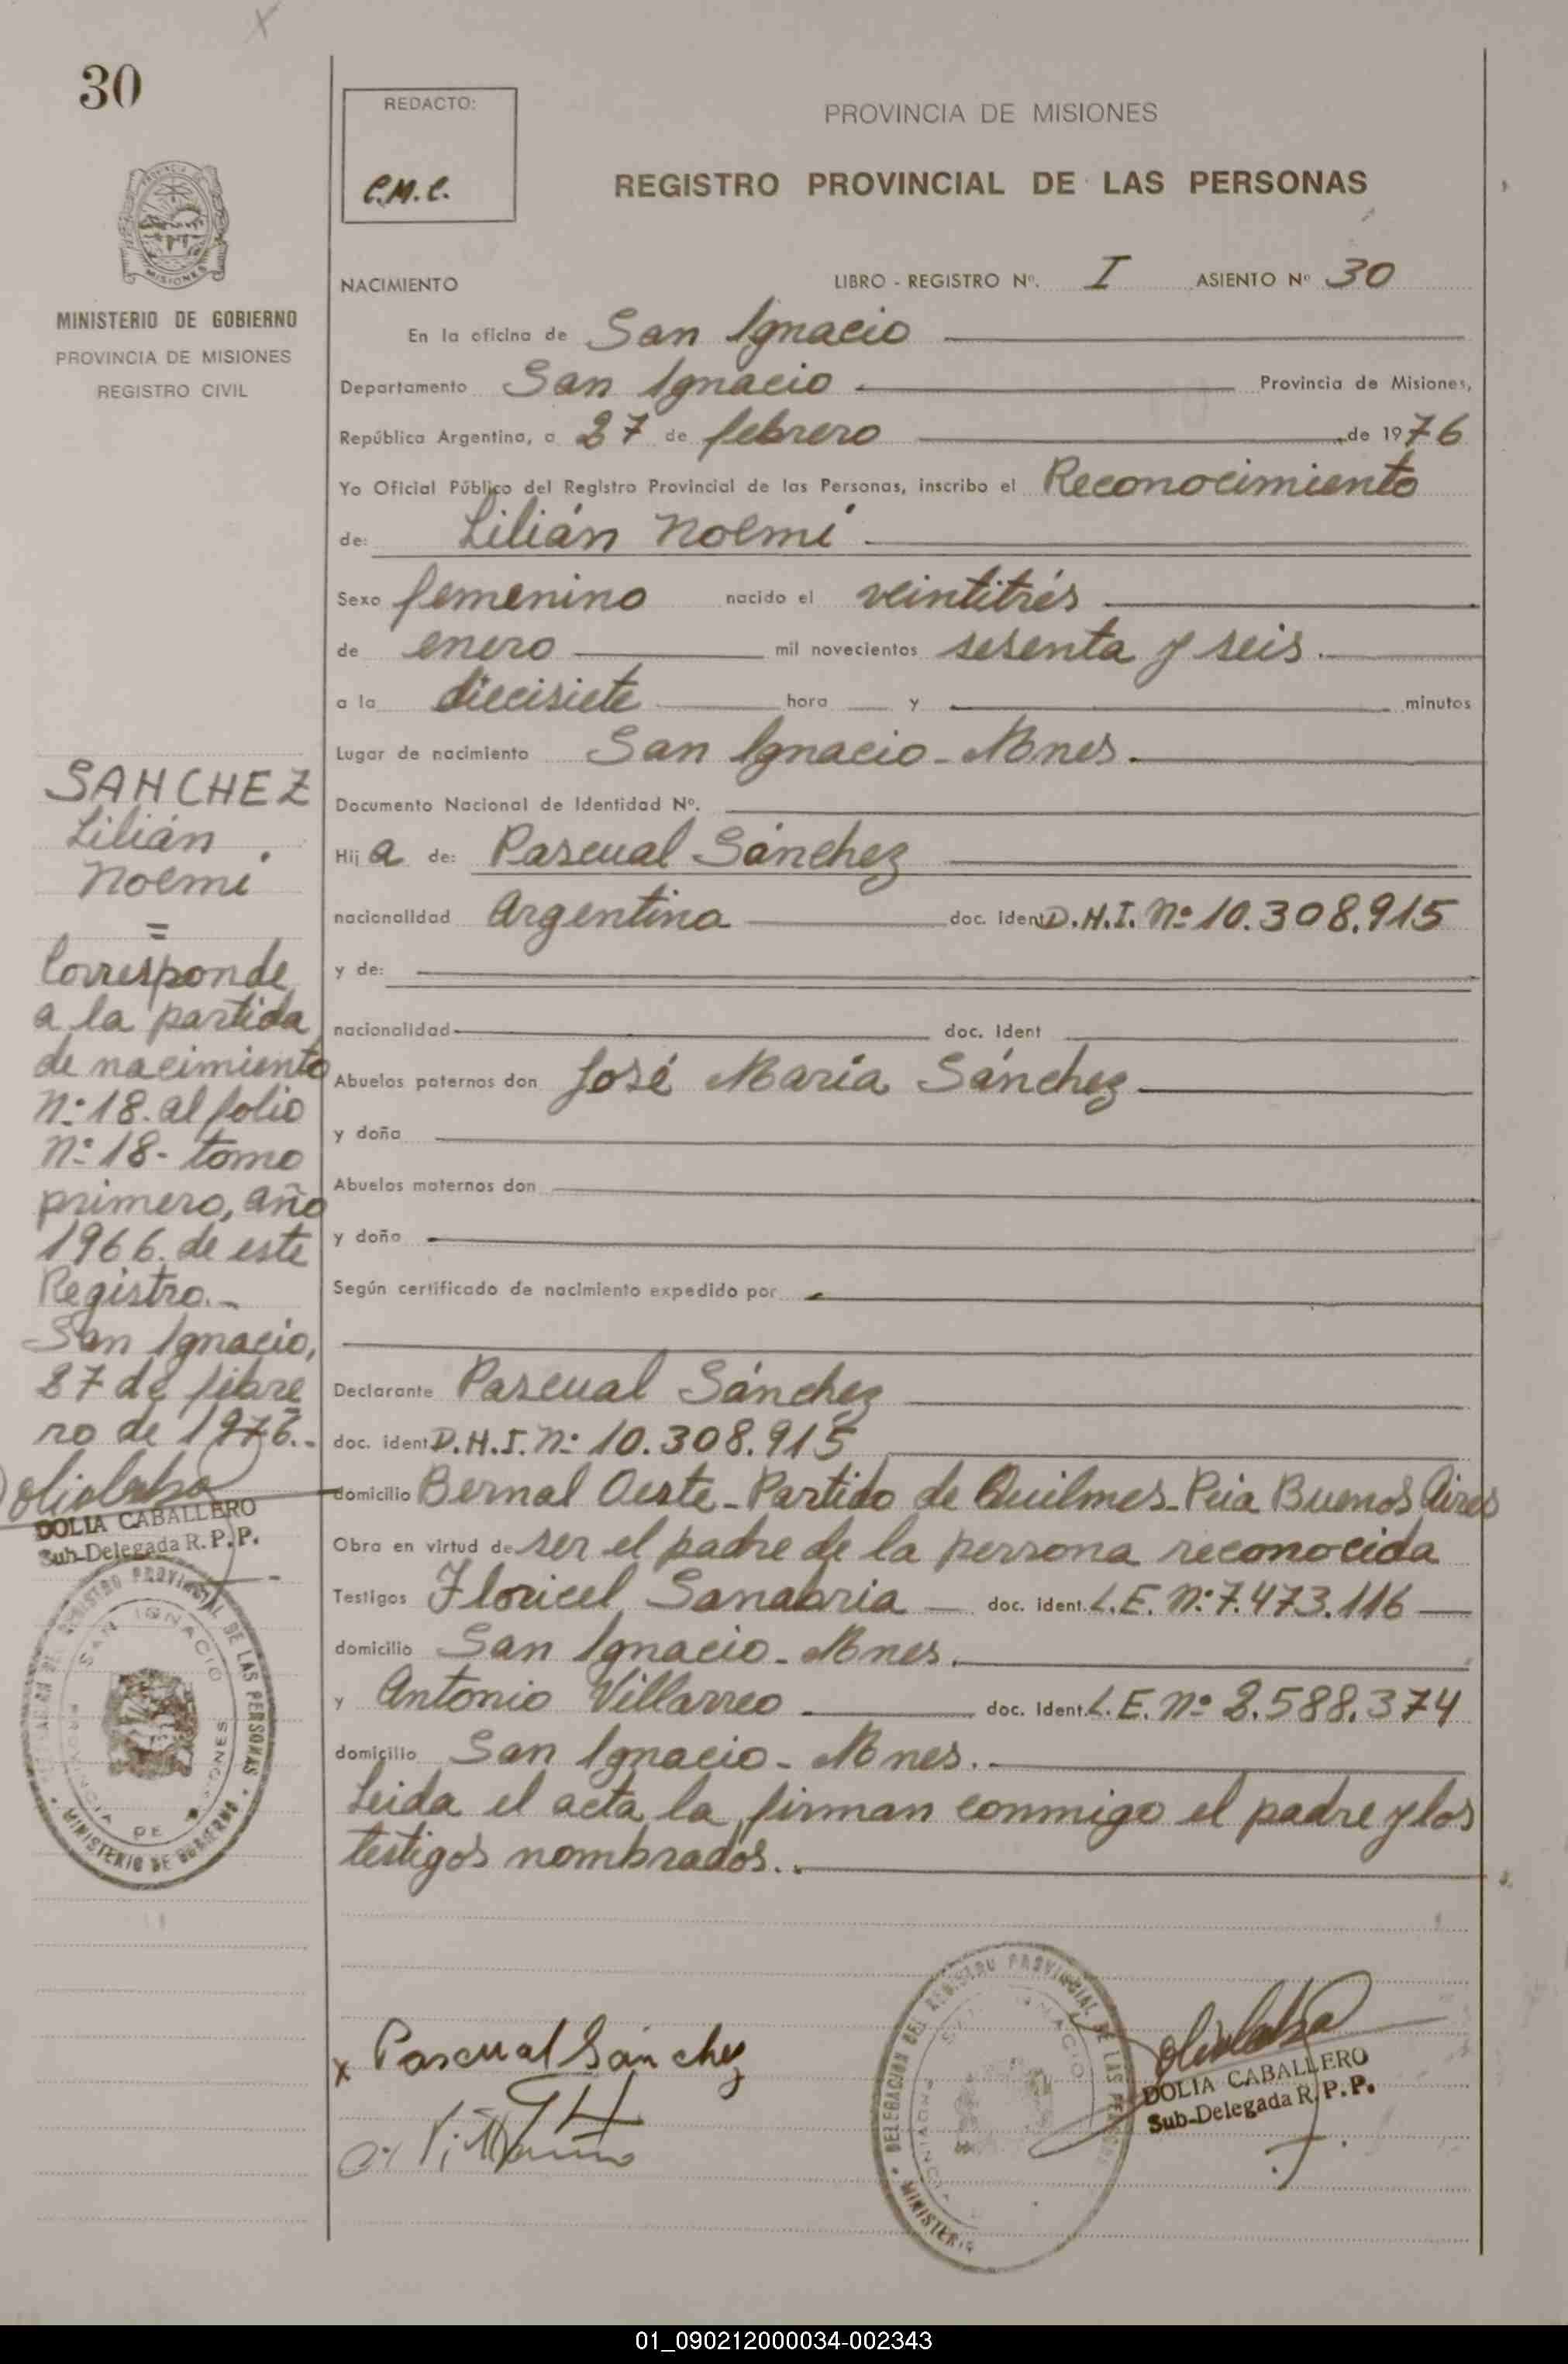 30
REDACTO:
C.M.C.
PROVINCIA DE MISIONES
REGISTRO PROVINCIAL DE LAS PERSONAS
MISIONES
MINISTERIO DE GOBIERNO
PROVINCIA DE MISIONES
REGISTRO CIVIL
NACIMIENTO LIBRO - REGISTRO Nº. I ASIENTO Nº 30
En la oficina de San Ignacio
Departamento San Ignacio Provincia de Misiones,
República Argentina, a 27 de febrero de 1976
Yo Oficial Público del Registro Provincial de las Personas, inscribo el Reconocimiento
de: Lilián Noemí
Sexo femenino nacido el veintitrés
de enero mil novecientos sesenta y seis.
a la diecisiete hora y minutos
Lugar de nacimiento San Ignacio - Mnes.
Documento Nacional de Identidad Nº.
Hij a de: Pascual Sánchez
nacionalidad Argentina doc. ident D.N.I. Nº 10.308.915
y de:
nacionalidad doc. ident
Abuelos paternos don José María Sánchez
y doña
Abuelos maternos don
y doña
Según certificado de nacimiento expedido por
Declarante Pascual Sánchez
doc. ident D.N.I. Nº 10.308.915
domicilio Bernal Oeste - Partido de Quilmes - Pcia Buenos Aires
Obra en virtud de ser el padre de la persona reconocida
Testigos Floricel Sanabria doc. ident. L.E. Nº 7.473.116
domicilio San Ignacio - Mnes.
y Antonio Villarreo doc. ident. L.E. Nº 2.588.374
domicilio San Ignacio - Mnes.
Leida el acta la firman conmigo el padre y los
testigos nombrados..
SANCHEZ
Lilián
Noemí
=
Corresponde
a la partida
de nacimiento
Nº 18. al folio
Nº 18 - tomo
primero, año
1966. de este
Registro.-
San Ignacio,
27 de febre
ro de 1976.-
DOLIA CABALLERO
Sub-Delegada R.P.P.
DELEGACION DEL REGISTRO PROVINCIAL DE LAS PERSONAS
SAN IGNACIO
PROVINCIA DE MISIONES
MINISTERIO DE GOBIERNO
x Pascual Sánchez
DELEGACION DEL REGISTRO PROVINCIAL DE LAS PERSONAS
MINISTERIO
DOLIA CABALLERO
Sub-Delegada R.P.P.
01_090212000034-002343